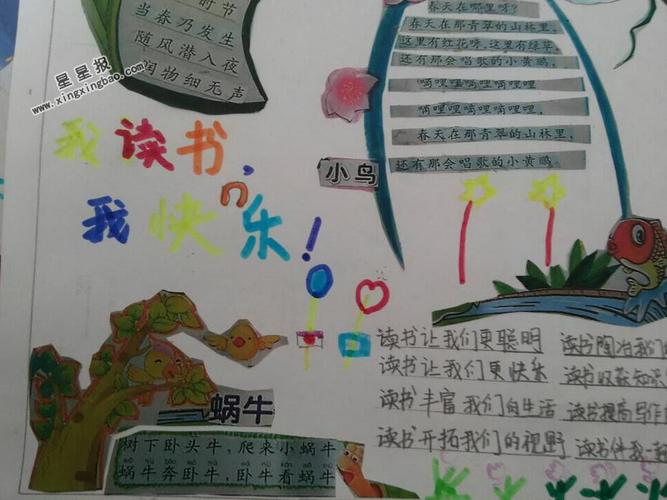 时节
当春乃发生
随风潜入夜
润物细无声
星星报
www.xingxingbao.com
春天在哪里呀?
春天在那青翠的山林里,
这里有红花呀,这里有绿草,
还有那会唱歌的小黄鹂,
嘀哩哩嘀哩嘀哩哩,
嘀哩哩嘀哩嘀哩哩,
春天在那青翠的山林里,
还有那会唱歌的小黄鹂。
小鸟
我读书,
我快乐!
读书让我们更聪明 读书陶冶我们
读书让我们更快乐 读书收获知识
读书丰富我们的生活 读书提高写作
读书开拓我们的视野 读书伴我一
蜗牛
树下卧头牛,爬来小蜗牛
蜗牛奔卧牛,卧牛看蜗牛